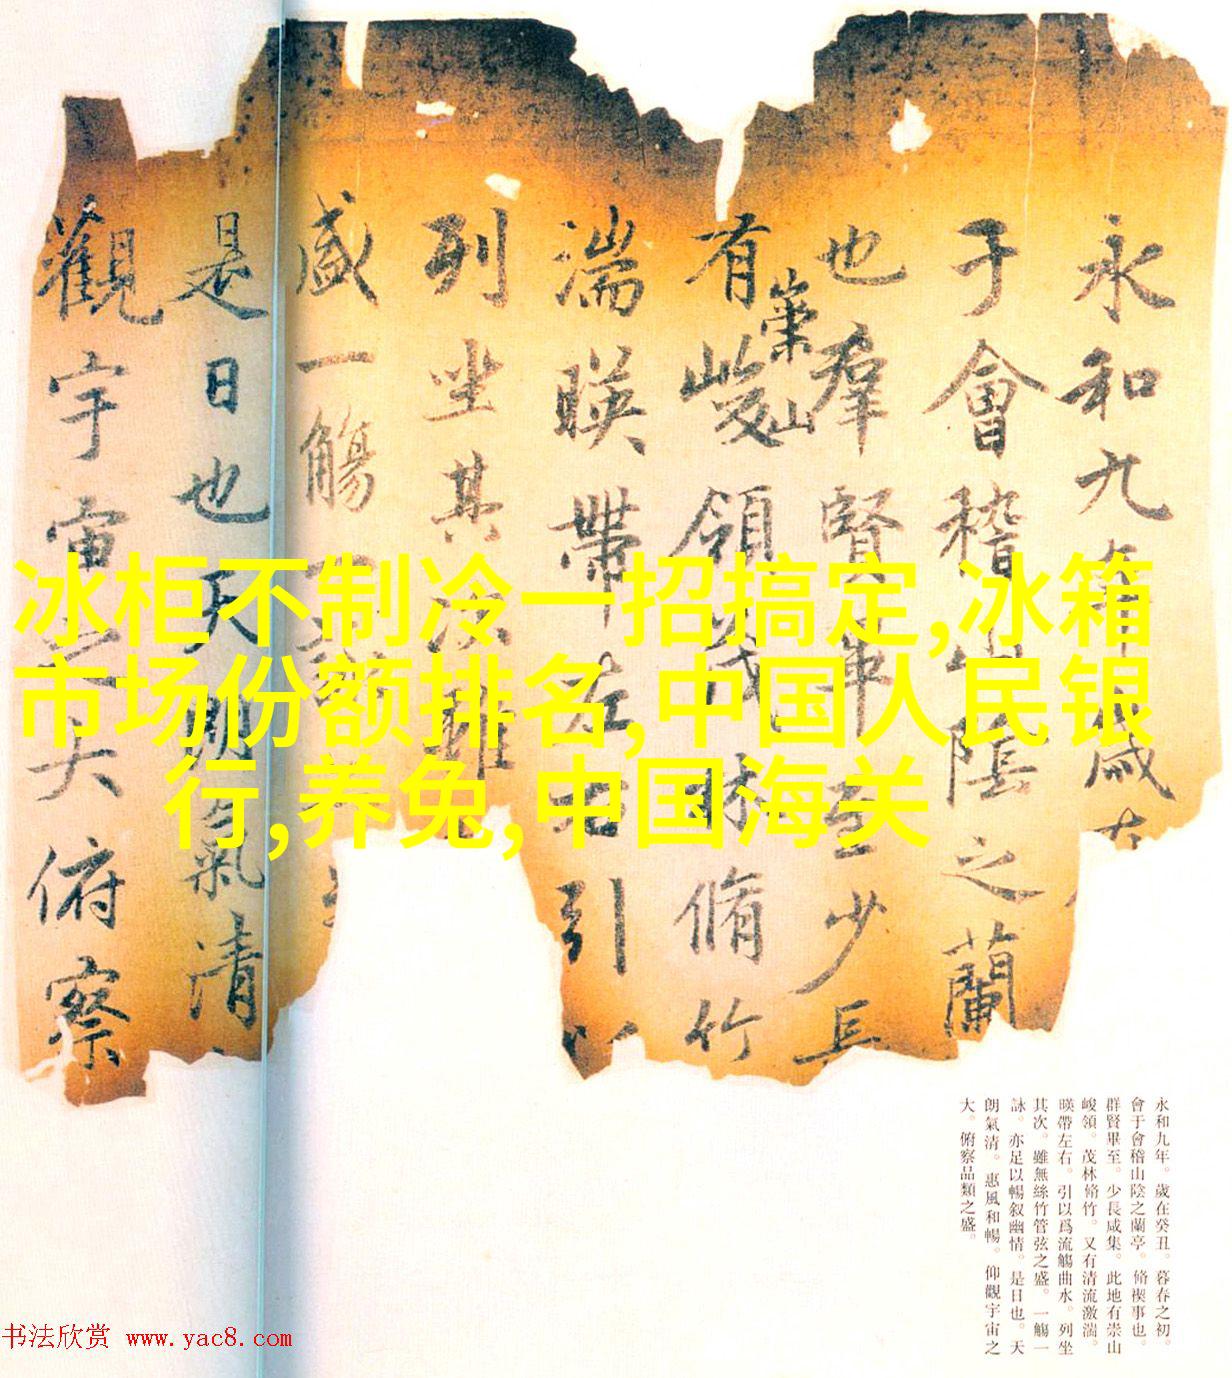 永和九年歲在
于會稽山陰之蘭
也羣賢畢至少長
有崇山峻領茂林脩竹
湍暎帶左右引以
列坐其次雖
盛一觴一詠
是日也天朗氣清
觀宇宙之大俯察
冰柜不制冷一招搞定,冰箱
市场份额排名,中国人民银
行,养兔,中国海关
永和九年。歲在癸丑。暮春之初。
會于會稽山陰之蘭亭。脩禊事也。
群賢畢至。少長咸集。此地有崇山
峻領。茂林脩竹。又有清流激湍。
暎帶左右。引以爲流觴曲水。列坐
其次。雖無絲竹管弦之盛。一觴一
詠。亦足以暢叙幽情。是日也。天
朗氣清。惠風和暢。仰觀宇宙之
大。俯察品類之盛。
书法欣赏 www.yac8.com